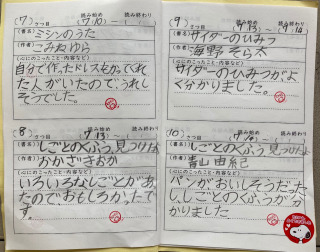 (7)さつ目
読み始め 読み終わり
(7/10)～( )
(書名) ミシンのうた
(作者) こみねゆら
(心にのこったこと・内容など)
自分で作ったドレスをかってくれ
た人がいたので、うれし
そうでした。
(8)さつ目
読み始め 読み終わり
(7/13)～( )
(書名) しごとのくふう見つけたよ
(作者) おかざきおか
(心にのこったこと・内容など)
いろいろなしごとがあっ
たのでおもしろかったで
す。
(9)さつ目
読み始め 読み終わり
(書名) サイダーのひみつ
(作者) 海野そら太
(心にのこったこと・内容など)
サイダーのひみつがよ
く分かりました。
(10)さつ目
読み始め 読み終わり
(書名) しごとのくふう見つけたよ
(作者) 青山由紀
(心にのこったこと・内容など)
パンがおいしそうだった
し、しごとのくふうが分
かりました